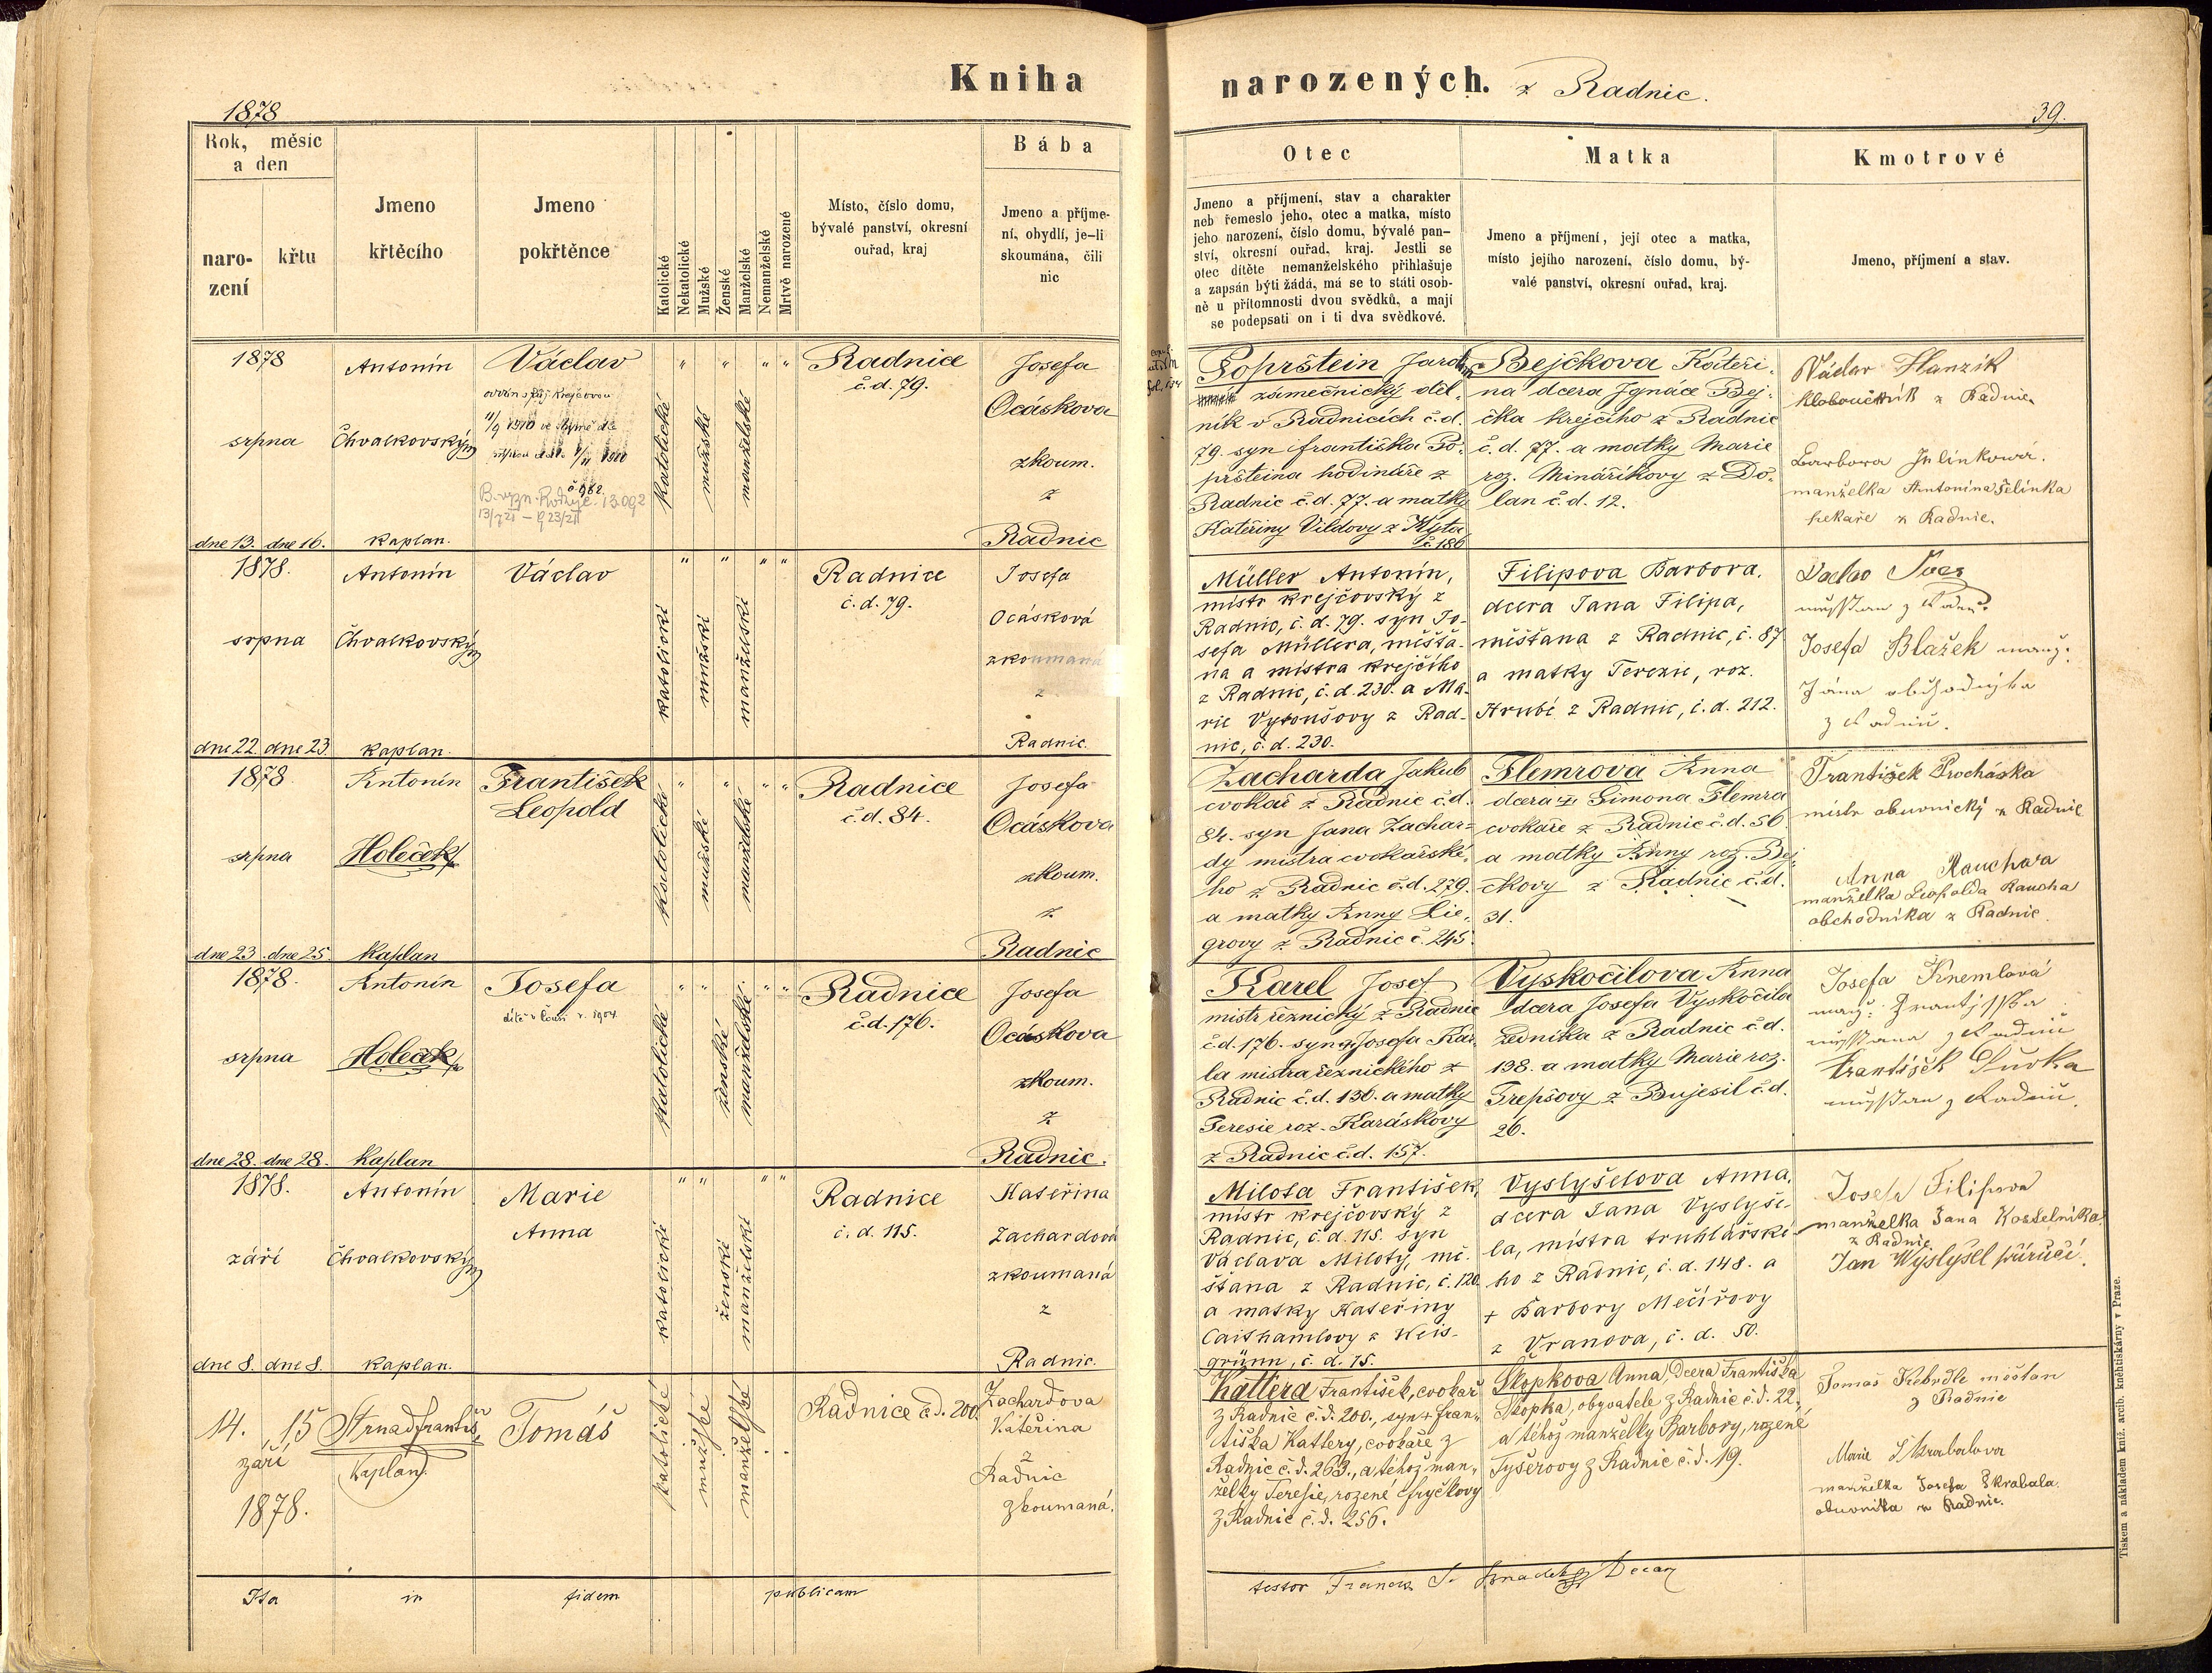 Kniha
narozených.
z Radnic.
1878
39.
Rok, měsíc
a den
naro-
zení
křtu
Jmeno
křtěcího
Jmeno
pokřtěnce
Katolické
Nekatolické
Mužské
Ženské
Manželské
Nemanželské
Mrtvě narozené
Místo, číslo domu,
bývalé panství, okresní
ouřad, kraj
Bába
Jmeno a příjme-
ní, obydlí, je-li
skoumána, čili
nic
Otec
Jmeno a příjmení, stav a charakter
neb řemeslo jeho, otec a matka, místo
jeho narození, číslo domu, bývalé pan-
ství, okresní ouřad, kraj. Jestli se
otec dítěte nemanželského přihlašuje
a zapsán býti žádá, má se to státi osob-
ně u přítomnosti dvou svědků, a mají
se podepsati on i ti dva svědkové.
Matka
Jmeno a příjmení, její otec a matka,
místo jejího narození, číslo domu, bý-
valé panství, okresní ouřad, kraj.
Kmotrové
Jmeno, příjmení a stav.
1878
srpna
dne 13. dne 16.
Antonín
Čhvalkovský
kaplan.
Václav
katolické
mužské
manželské
Radnice
č.d. 79.
Josefa
Ocáskova
zkoum.
z
Radnic
Poprštein
zámečnický děl-
ník v Radnicích č.d.
79. syn františka Po-
pršteina hodináře z
Radnic č.d. 77. a matky
Kateřiny Vildovy z
č. 186
Bejčkova Kateři-
na dcera Jgnáce Bej-
čka krejčího z Radnic
č.d. 77. a matky Marie
roz. Minaříkovy z Do-
lan č.d. 12.
Václav Hanzík
kloboučník z Radnic
Barbora Jelínková.
manželka Antonína Jelínka
pekaře z Radnic.
1878.
srpna
dne 22. dne 23
Antonín
Čhvalkovský
kaplan.
Václav
katolické
mužské
manželské
Radnice
č.d. 79.
Josefa
Ocásková
zkoumaná
z
Radnic.
Müller Antonín,
mistr krejčovský z
Radnic, č.d. 79. syn Jo-
sefa Müllera, měšťa-
na a mistra krejčího
z Radnic, č.d. 230. a Ma-
rie z Rad-
nic, č.d. 230.
Filipova Barbora,
dcera Jana Filipa,
měšťana z Radnic, č. 87
a matky Terezie, roz.
Hrubé z Radnic, č.d. 212.
Josefa Blažek manž:
Jána obchodnýka
z Radnic.
1878
srpna
dne 23. dne 25.
Antonín
Holeček
kaplan
František
Leopold
katolické
mužské
manželské
Radnice
č.d. 84.
Josefa
Ocáskova
zkoum.
z
Radnic
Zacharda Jakub
cvokař z Radnic č.d.
84. syn Jana Zachar-
dy mistra cvokařské-
ho z Radnic č.d. 279.
a matky Anny Lie-
grovy z Radnic č. 245.
Flemrova Anna
dcera Šimona Flemra
cvokaře z Radnic č.d. 56.
a matky Anny roz. Bej-
čkovy z Radnic č.d.
31.
František Procháska
mistr obuvnický z Radnic
Anna Rauchova
manželka Leopolda Raucha
obchodníka z Radnic.
1878.
srpna
dne 28. dne 28.
Antonín
Holeček
kaplan
Josefa
katolické
ženské
manželské
Radnice
č.d. 176.
Josefa
Ocáskova
zkoum.
z
Radnic.
Karel Josef
mistr řeznický z Radnic
č.d. 176. syn Josefa Kar-
la mistra řeznického z
Radnic č.d. 136. a matky
Teresie roz. Karáskovy
z Radnic č.d. 157.
Vyskočilova Anna
dcera Josefa Vyskočila
zedníka z Radnic č.d.
138. a matky Marie roz.
Trepšovy z Bujesil č.d.
26.
Josefa Knemlová
1878.
září
dne 8. dne 8.
Antonín
Čhvalkovský
kaplan.
Marie
Anna
katolické
ženské
manželské
Radnice
č.d. 115.
Kateřina
Zachardová
zkoumaná
z
Radnic.
Milota František,
mistr krejčovský z
Radnic, č.d. 115. syn
Václava Miloty, mě-
šťana z Radnic, č. 120.
a matky Kateřiny
Caithamlovy z Weis-
grünn, č.d. 15.
Vyslyšelova Anna,
dcera Jana Vyslyše-
la, mistra truhlářské-
ho z Radnic, č.d. 148. a
+ Barbory Mečířovy
z Vranova, č.d. 50.
Josefa Filipova
manželka Jana Kostelníka
z Radnic
Jan Wyslyšel
14. 15
září
1878.
Strnad františ.
kaplan
Tomáš
katolické
mužské
manželské
Radnice č.d. 200.
Zachardova
Kateřina
z
Radnic
zkoumaná.
Kattera František, cvokař
z Radnic č.d. 200., syn + fran-
tiška Kattery, cvokaře z
Radnic č.d. 263., a téhož man-
želky Teresie, rozené
z Radnic č.d. 256.
Skopkova Anna, Dcera Františka
Skopka, obyvatele z Radnic č.d. 22.
a téhož manželky Barbory, rozené
Tyšerovy z Radnic č.d. 19.
Tomáš Kebrdle měšťan
z Radnic
Marie Škrabalova
manželka Josefa Škrabala.
obuvníka z Radnic.
Ita in fidem publicam
testor
Tiskem a nákladem kníž. arcib. knihtiskárny v Praze.